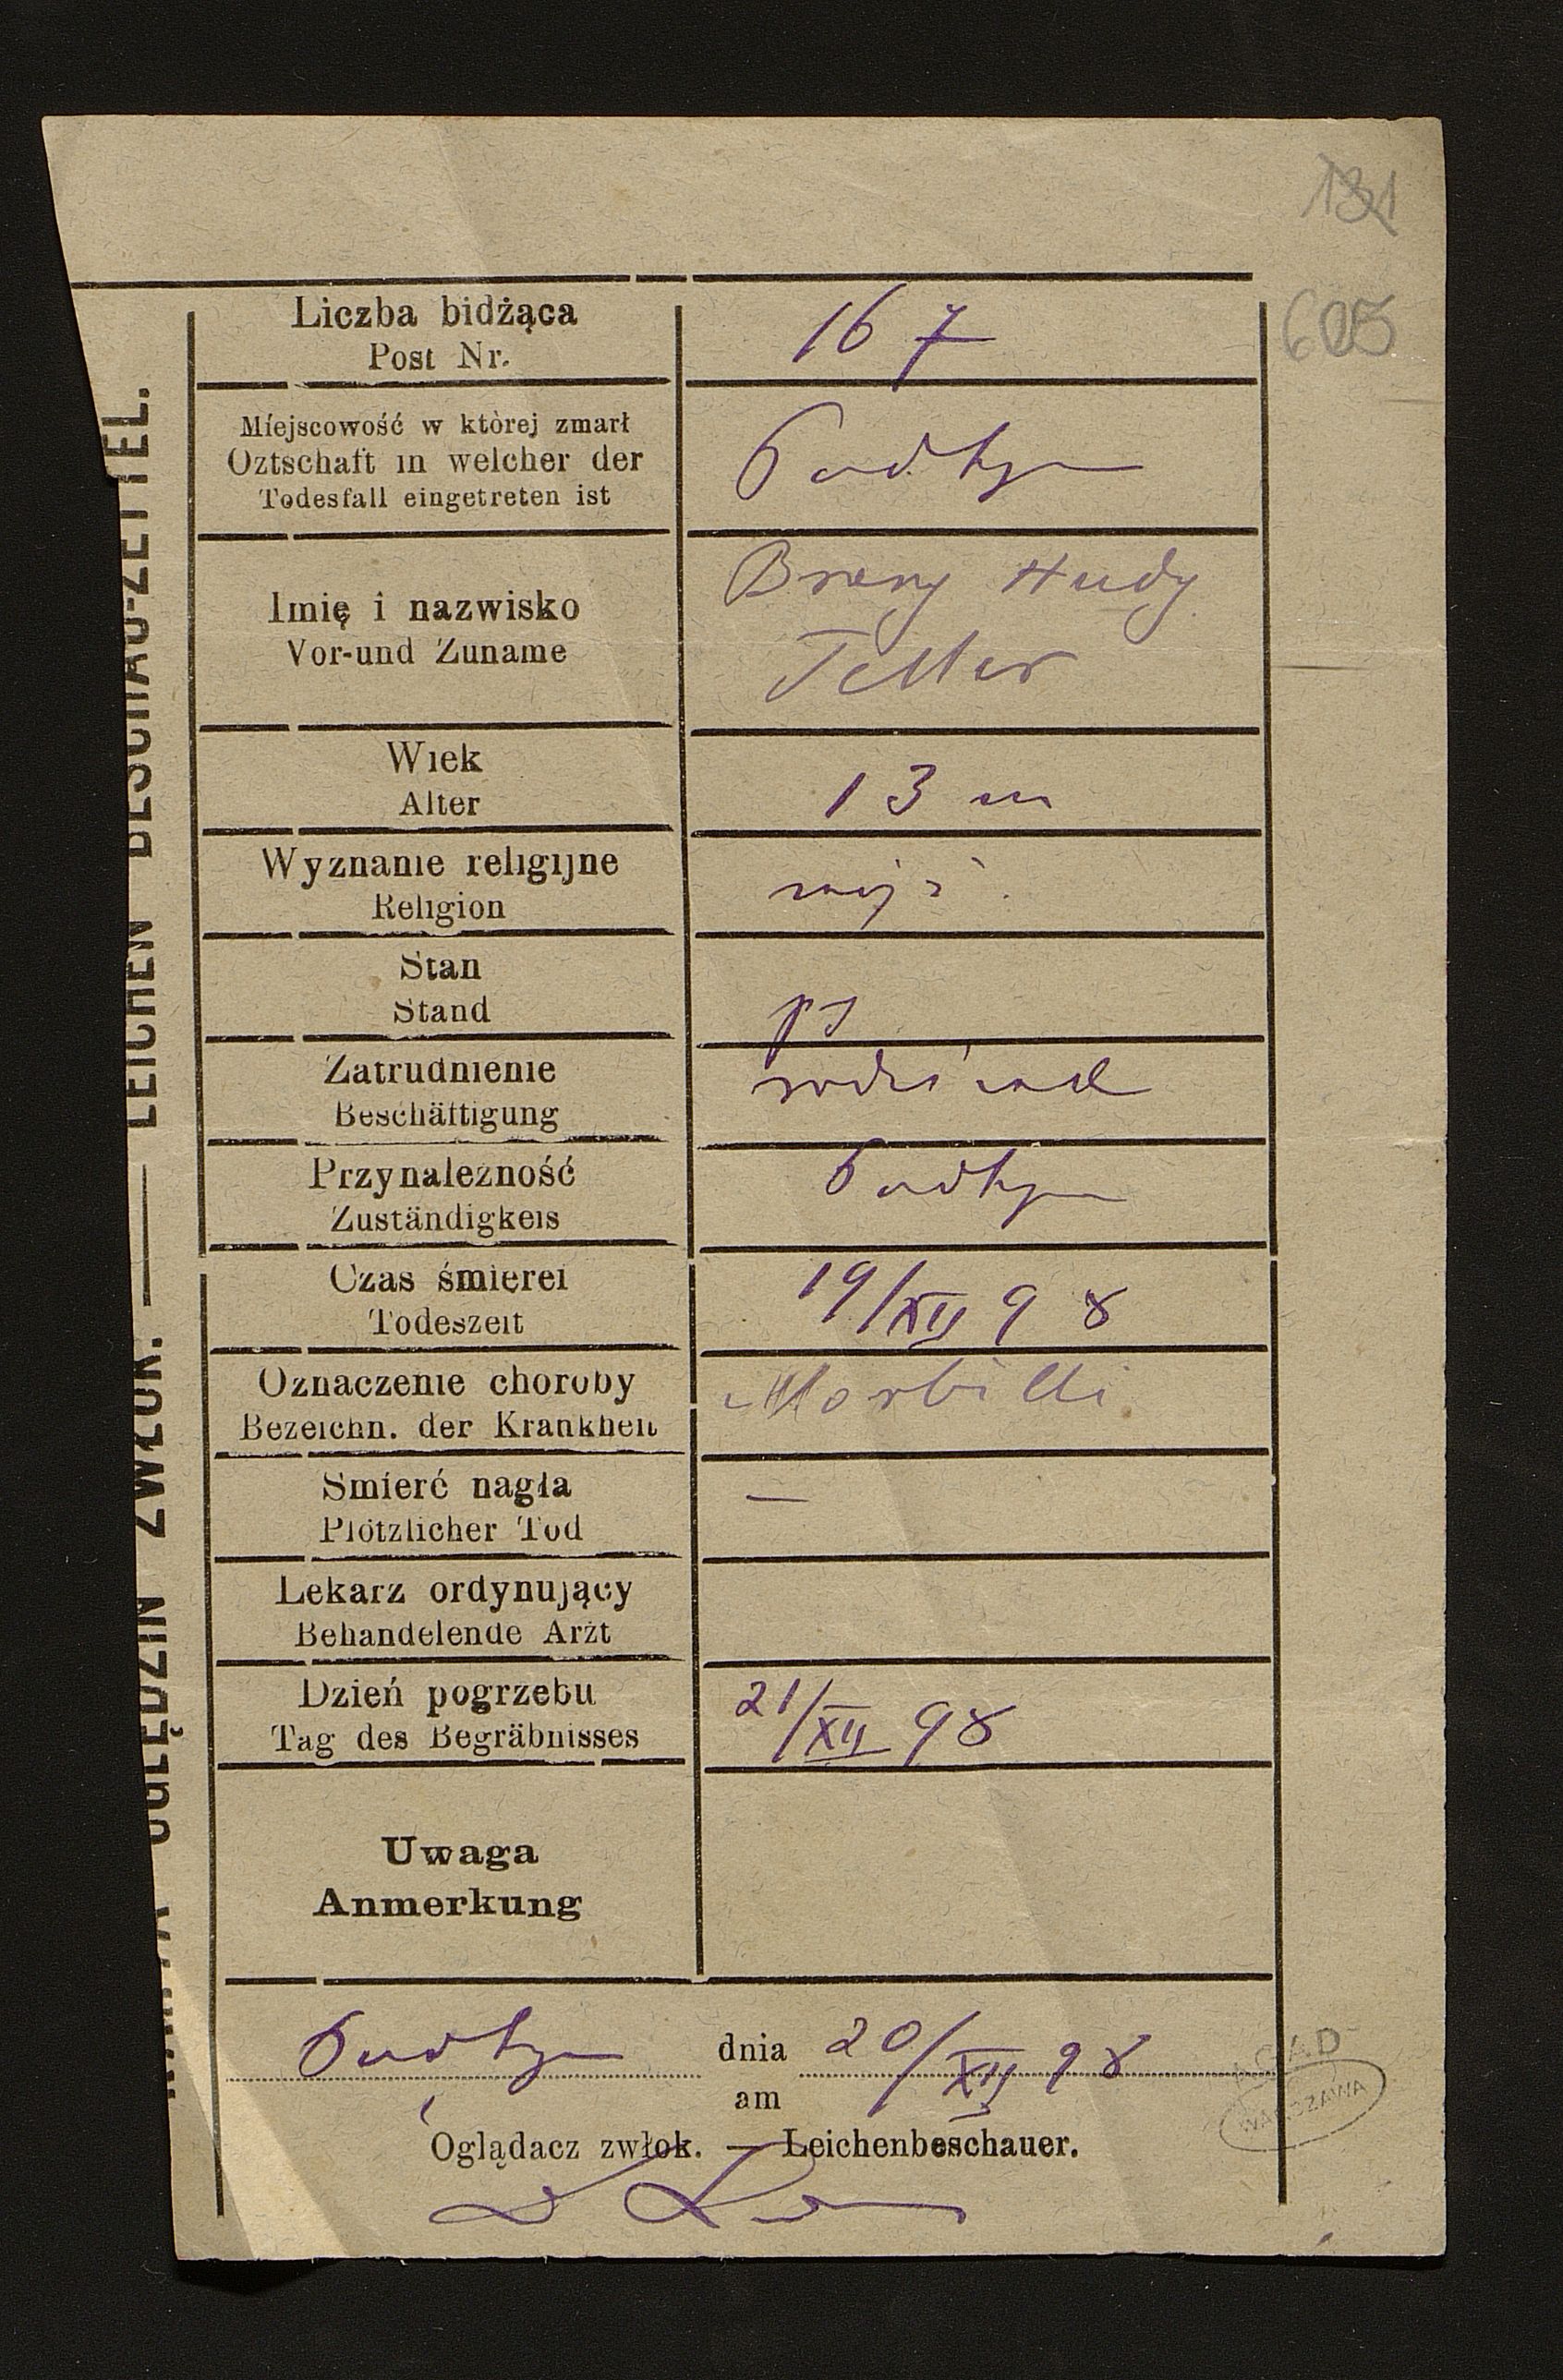 131
605
Liczba bidżąca
Post Nr.
167
Miejscowość w której zmarł
Oztschaft in welcher der
Todesfall eingetreten ist
Imię i nazwisko
Vor-und Zuname
Hudy
Teller
Wiek
Alter
13 m
Wyznanie religijne
Religion
mojż.
Stan
Stand
Zatrudnienie
Beschäftigung
Przynależność
Zuständigkeis
Czas śmierei
Todeszeit
19/XII 98
Oznaczenie choroby
Bezeichn. der Krankheit
Morbilli
Smierć nagła
Plötzlicher Tod
—
Lekarz ordynujący
Behandelende Arzt
Dzień pogrzebu
Tag des Begräbnisses
21/XII 98
Uwaga
Anmerkung
dnia 20/XII 98
am
Oglądacz zwłok. — Leichenbeschauer.
OGLĘDZIN ZWŁOK. — LEICHEN BESCHAU-ZETTEL.
AGAD
WARSZAWA